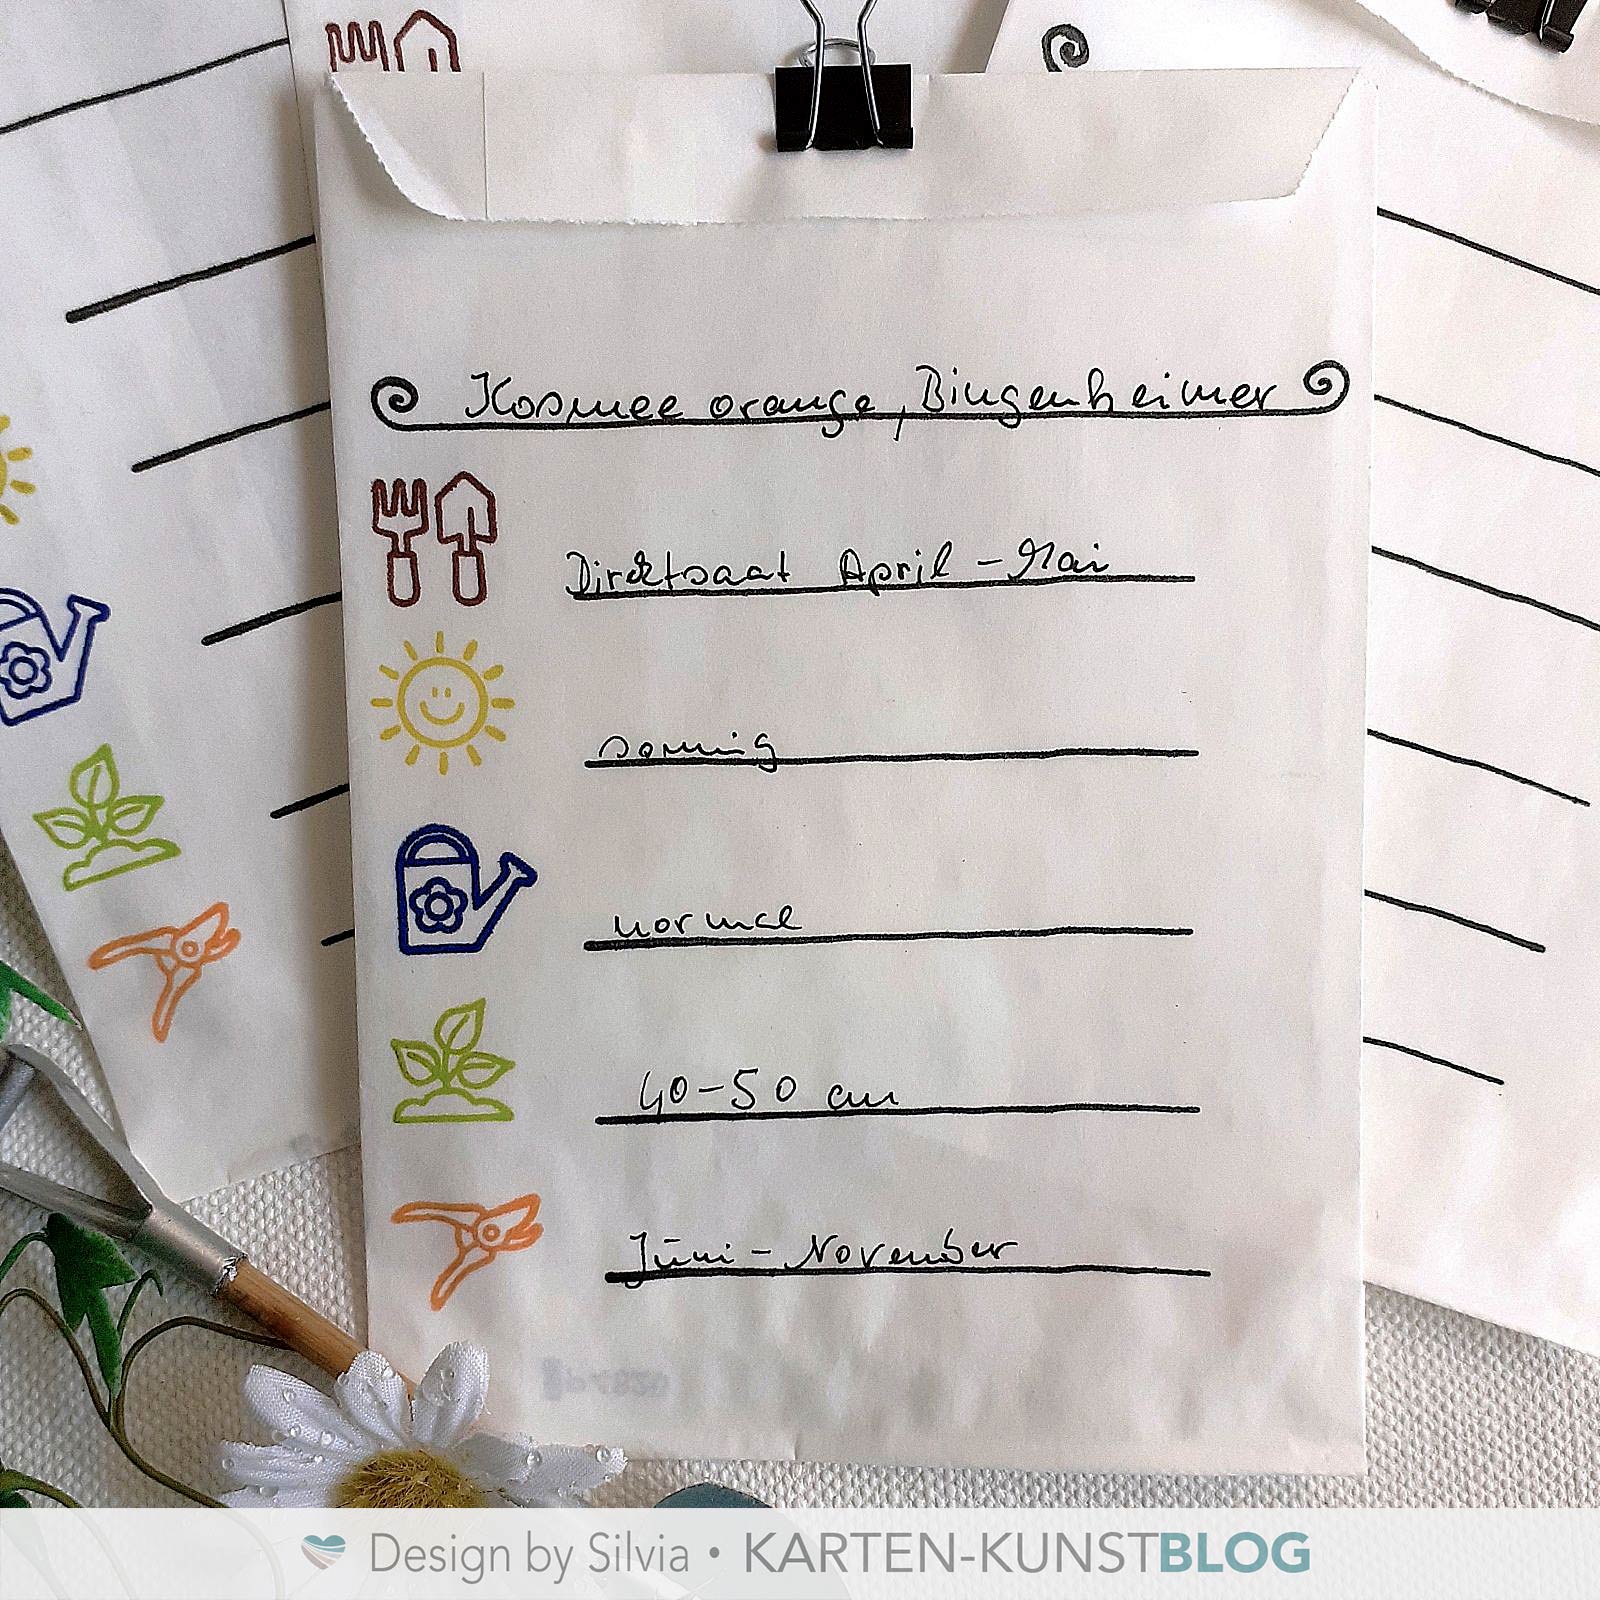 Kosmee orange, Bingenheimer
Direktsaat April - Mai
sonnig
normal
40-50 cm
Juni - November
Design by Silvia • KARTEN-KUNSTBLOG